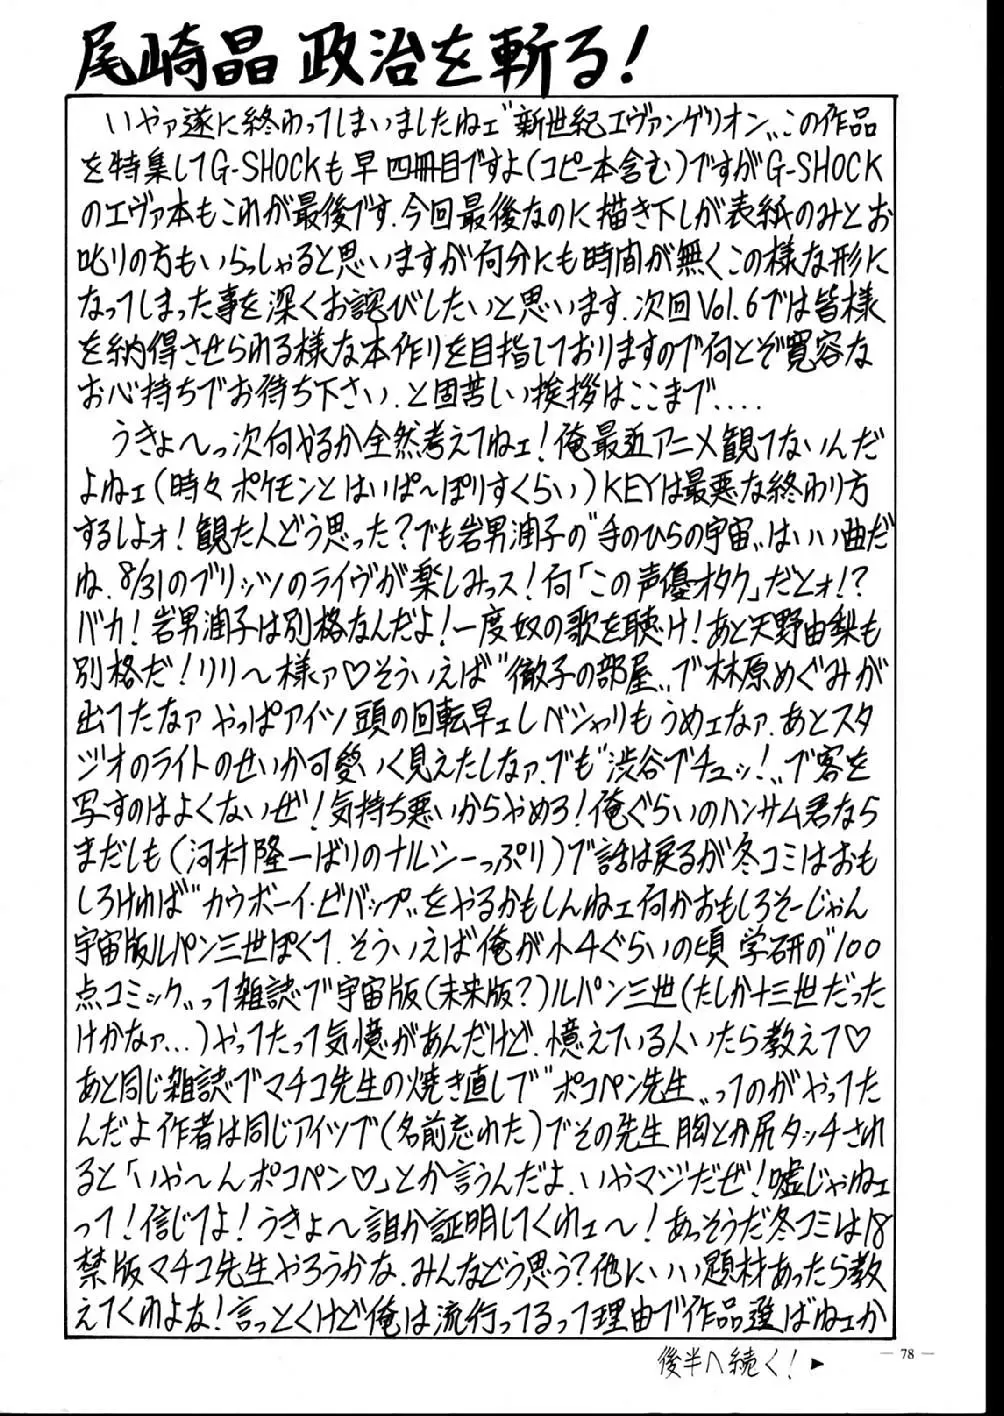 尾崎晶 政治を斬る!
いやァ遂に終わってしまいましたねェ"新世紀エヴァンゲリオン"この作品
を特集してG-SHOCKも早四冊目ですよ(コピー本含む)ですがG-SHOCK
のエヴァ本もこれが最後です.今回最後なのに描き下しが表紙のみとお
叱りの方もいらっしゃると思いますが何分にも時間が無くこの様な形に
なってしまった事を深くお詫びしたいと思います.次回Vol.6では皆様
を納得させられる様な本作りを目指しておりますので何とぞ寛容な
お心持ちでお待ち下さい.と固苦しい挨拶はここまで....
うきょ〜っ次何やるか全然考えてねェ!俺最近アニメ観てないんだ
よねェ(時々ポケモンとはいぱ〜ぽりすくらい)KEYは最悪な終わり方
するしよォ!観た人どう思った?でも岩男潤子の"手のひらの宇宙"はいい曲だ
ね.8/31のブリッツのライヴが楽しみっス!何「この声優オタク」だとォ!?
バカ!岩男潤子は別格なんだよ!一度奴の歌を聴け!あと天野由梨も
別格だ!リリ〜様ァ♡そういえば"徹子の部屋"で林原めぐみが
出てたなァ やっぱアイツ頭の回転早ェしベシャリもうめェなァ.あとスタ
ジオのライトのせいか可愛いく見えたしなァ.でも"渋谷でチュッ!"で客を
写すのはよくないぜ!気持ち悪いからやめろ!俺ぐらいのハンサム君なら
まだしも(河村隆一ばりのナルシーっぷり)で話は戻るが冬コミはおも
しろければ"カウボーイ・ビバップ"をやるかもしんねェ何かおもしろそーじゃん
宇宙版ルパン三世ぽくて.そういえば俺が小4ぐらいの頃 学研の"100
点コミック"って雑誌で宇宙版(未来版?)ルパン三世(たしか十三世だった
けかなァ...)やってたって気憶があんだけど.憶えている人いたら教えて♡
あと同じ雑誌でマチコ先生の焼き直しで"ポコペン先生"ってのがやってた
んだよ作者は同じアイツで(名前忘れた)でその先生 胸とか尻タッチされ
ると「いや〜んポコペン♡」とか言うんだよ.いやマジだぜ!嘘じゃねェ
って!信じてよ!うきょ〜誰か証明してくれェ〜!あっそうだ冬コミは18
禁版マチコ先生やろうかな.みんなどう思う?他にいい題材あったら教
えてくれよな!言っとくけど俺は流行ってるって理由で作品選ばねェか
後半へ続く!▶
— 78 —